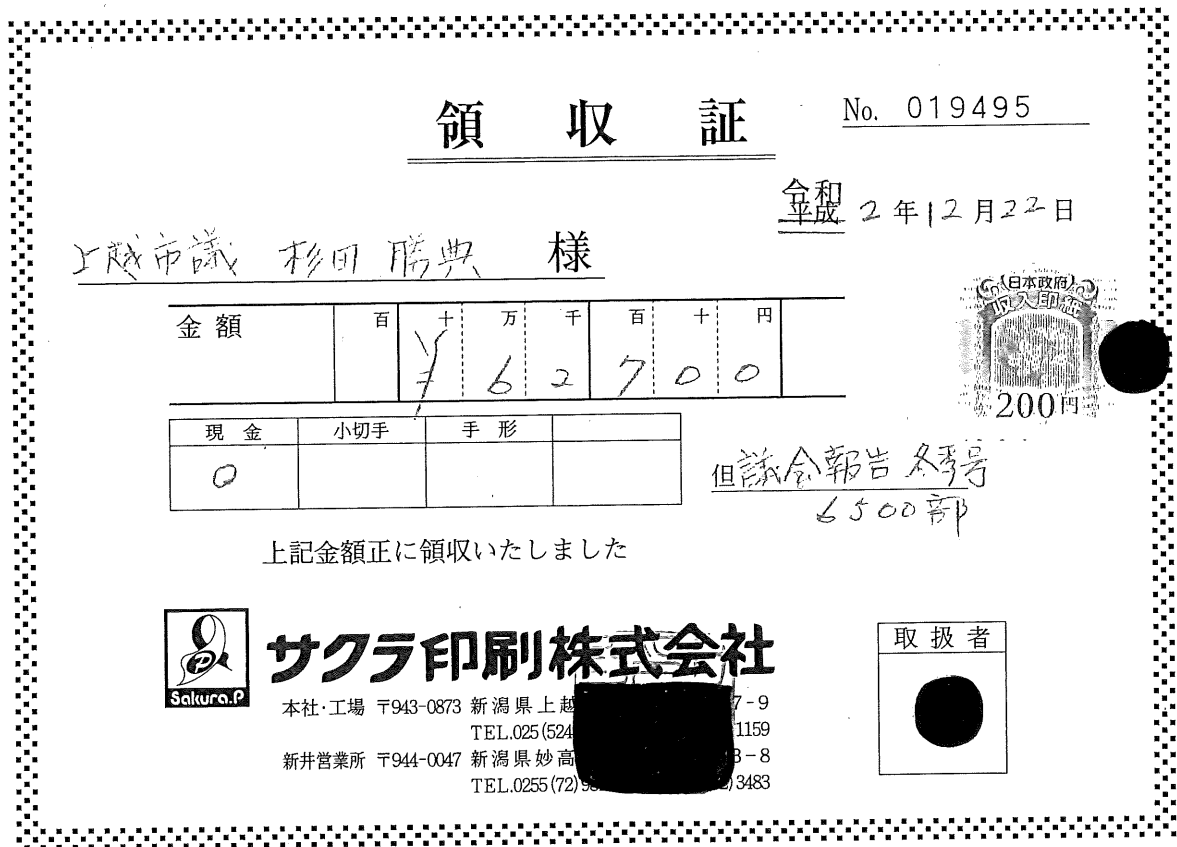 領収証
No. 019495
令和
平成 2年12月22日
上越市議 杉田 勝典 様
日本政府
収入印紙
200円
金額 百 十 万 千 百 十 円
¥ 6 2 7 0 0
現金 小切手 手形
0
但 議会報告 冬季号
6500部
上記金額正に領収いたしました
Sakura.P
サクラ印刷株式会社
本社・工場 〒943-0873 新潟県上越 7-9
TEL.025(524 1159
新井営業所 〒944-0047 新潟県妙高 3-8
TEL.0255(72)9 3483
取扱者